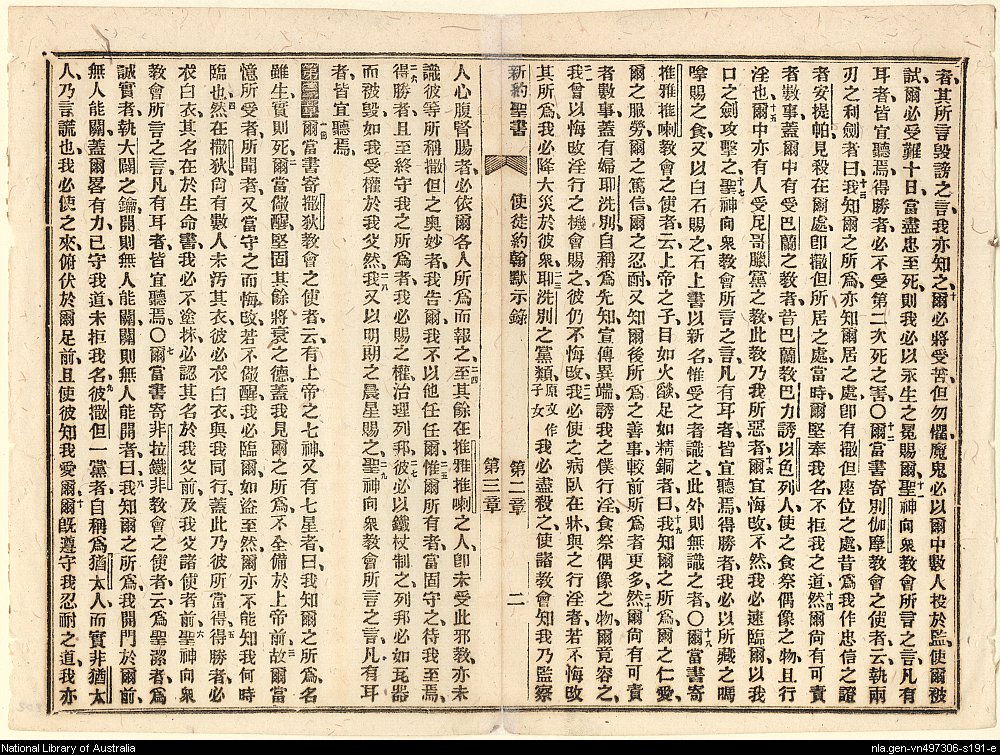 者、其所言毀謗之言、我亦知之、爾必將受苦、但勿懼、魔鬼必以爾中數人投於監、使爾被
試、爾必受難十日、當盡忠至死、則我必以永生之冕賜爾、聖神向衆教會所言之言、凡有
耳者、皆宜聽焉、得勝者、必不受第二次死之害、○爾當書寄別伽摩教會之使者、云、執兩
刃之利劍者曰、我知爾之所爲、亦知爾居之處、卽有撒但座位之處、昔爲我作忠信之證
者安提帕、見殺在爾處、卽撒但所居之處、當時爾堅奉我名、不拒我之道、然爾尙有可責
者數事、蓋爾中有受巴蘭之教者、昔巴蘭教巴力、誘以色列人、使之食祭偶像之物、且行
淫也、爾中亦有人受尼哥臘黨之教、此教乃我所惡者、爾宜悔改、不然、我必速臨爾、以我
口之劍攻擊之、聖神向衆教會所言之言、凡有耳者、皆宜聽焉、得勝者、我必以所藏之嗎
嗱賜之食、又以白石賜之、石上書以新名、惟受之者識之、此外則無識之者、○爾當書寄
推雅推喇教會之使者、云、上帝之子、目如火燄、足如精銅者曰、我知爾之所爲、爾之仁愛、
爾之服勞、爾之篤信、爾之忍耐、又知爾後所爲之善事、較前所爲者更多、然爾尙有可責
者數事、蓋有婦耶洗別、自稱爲先知、宣傳異端、誘我之僕行淫、食祭偶像之物、爾竟容之、
我曾以悔改淫行之機會賜之、彼仍不悔改、我必使之病臥在牀、與之行淫者、若不悔改
其所爲、我必降大災於彼衆、耶洗別之黨類、原文作子女我必盡殺之、使諸教會知我乃監察
新約聖書 使徒約翰默示錄 第二章 第三章 二
人心腹腎腸者、必依爾各人所爲而報之、至其餘在推雅推喇之人、卽未受此邪教、亦未
識彼等所稱撒但之奧妙者、我告爾、我不以他任任爾、惟爾所有者、當固守之、待我至焉、
得勝者、且至終守我之所爲者、我必賜之權治理列邦、彼必以鐵杖制之、列邦必如瓦器
而被毀、如我受權於我父然、我又以明朗之晨星賜之、聖神向衆教會所言之言、凡有耳
者、皆宜聽焉、
第三章 爾當書寄撒狄教會之使者、云、有上帝之七神、又有七星者曰、我知爾之所爲、名
雖生、實則死、爾當儆醒、堅固其餘將衰之德、蓋我見爾之所爲、不全備於上帝前、故爾當
憶所受者、所聞者、又當守之而悔改、若不儆醒、我必臨爾如盜至然、爾亦不能知我何時
臨也、然在撒狄、尙有數人未污其衣、彼必衣白衣、與我同行、蓋此乃彼所當得、得勝者、必
衣白衣、其名在於生命書、我必不塗抹、必認其名於我父前、及我父諸使者前、聖神向衆
教會所言之言、凡有耳者、皆宜聽焉、○爾當書寄非拉鐵非教會之使者、云、爲聖潔者、爲
誠實者、執大闢之鑰、開則無人能關、關則無人能開者曰、我知爾之所爲、我開門於爾前、
無人能關、蓋爾畧有力、已守我道、未拒我名、彼撒但一黨者、自稱爲猶太人、而實非猶太
人、乃言謊也、我必使之來俯伏於爾足前、且使彼知我愛爾、爾旣遵守我忍耐之道、我亦
National Library of Australia
nla.gen-vn497306-s191-e